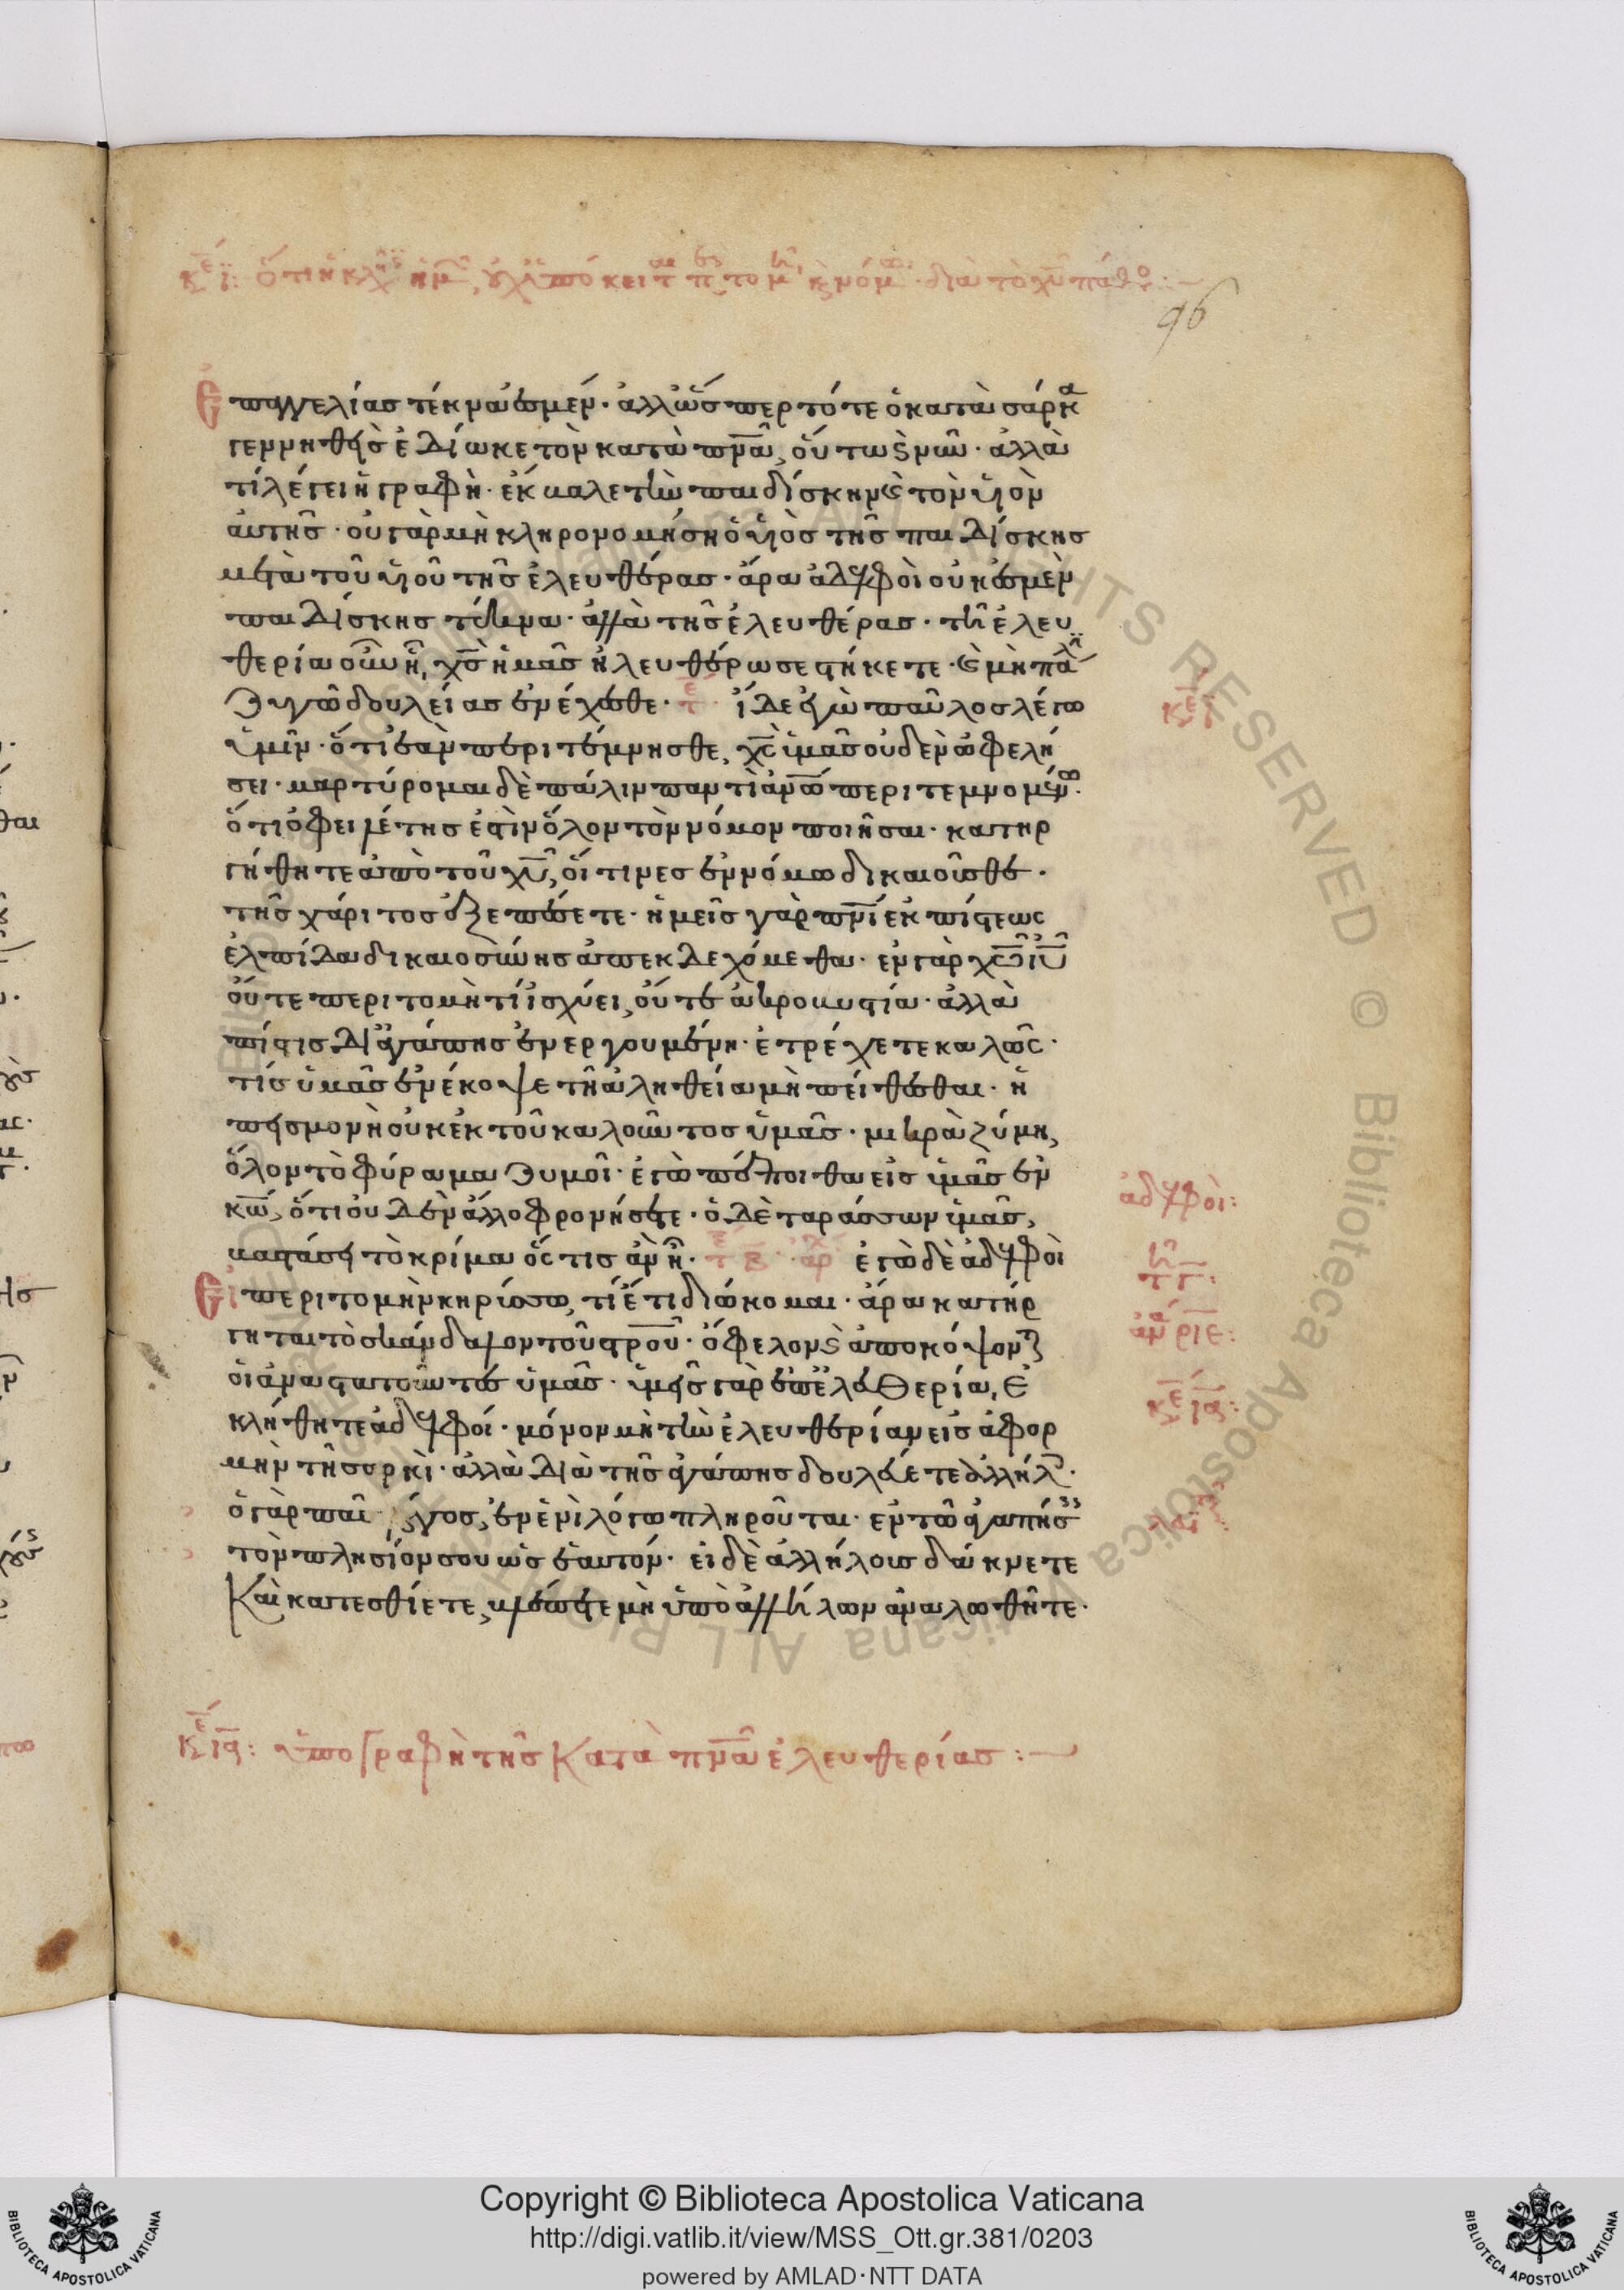 96
ἐπαγγελίας τέκνα ἐσμέν· ἀλλ' ὥσπερ τότε ὁ κατὰ σάρκα
γεννηθεὶς ἐδίωκε τὸν κατὰ πνᾶ, οὕτως κ νῦν· ἀλλὰ
τί λέγει ἡ γραφή· ἔκβαλε τὴν παιδίσκην κ τὸν υἱὸν
αὐτῆς· οὐ γὰρ μὴ κληρονομήσῃ ὁ υἱὸς τῆς παιδίσκης
μετὰ τοῦ υἱοῦ τῆς ἐλευθέρας· ἄρα ἀδελφοὶ οὐκ ἐσμὲν
παιδίσκης τέκνα· ἀλλὰ τῆς ἐλευθέρας· τῆ ἐλευ
θερία οὖν ἧ χς ἡμᾶς ἠλευθέρωσε στήκετε· κ μὴ πάλιν
ζυγῶ δουλείας ἐνέχεσθε· τε ἴδε ἐγὼ παῦλος λέγω
ὑμῖν· ὅτι ἐὰν περιτέμνησθε, χς ὑμᾶς οὐδὲν ὠφελή
σει· μαρτύρομαι δὲ πάλιν παντὶ ἀνω περιτεμνομένω·
ὅτι ὀφειλέτης ἐστὶν ὅλον τὸν νόμον ποιῆσαι· κατηρ
γήθητε ἀπὸ τοῦ χυ, οἵτινες ἐν νόμω δικαιοῦσθε·
τῆς χάριτος ἐξεπέσετε· ἡμεῖς γὰρ πνι ἐκ πίστεως
ἐλπίδα δικαιοσύνης ἀπεκδεχόμεθα· ἐν γὰρ χω ιυ
οὔτε περιτομή τι ἰσχύει, οὔτε ἀκροβυστία· ἀλλὰ
πίστις δι' ἀγάπης ἐνεργουμένη· ἐτρέχετε καλῶς·
τίς ὑμᾶς ἐνέκοψε τῆ ἀληθεία μὴ πείθεσθαι· ἡ
πεισμονὴ οὐκ ἐκ τοῦ καλοῦντος ὑμᾶς· μικρὰ ζύμη,
ὅλον τὸ φύραμα ζυμοῖ· ἐγὼ πέποιθα εἰς ὑμᾶς ἐν
κω, ὅτι οὐδὲν ἄλλο φρονήσετε· ὁ δὲ ταράσσων ὑμᾶς,
βαστάσει τὸ κρίμα ὅστις ἂν ἦ· ἐγὼ δὲ ἀδελφοὶ
εἰ περιτομὴν κηρύσσω, τί ἔτι διώκομαι· ἄρα κατήρ
γηται τὸ σκάνδαλον τοῦ στρου· ὄφελον κ ἀποκόψονται
οἱ ἀναστατοῦντες ὑμᾶς· ὑμεῖς γὰρ ἐπ' ἐλευθερία, ἐ
κλήθητε ἀδελφοί· μόνον μὴ τὴν ἐλευθερίαν εἰς ἀφορ
μὴν τῆ σαρκί· ἀλλὰ διὰ τῆς ἀγάπης δουλεύετε ἀλλήλοις·
ὁ γὰρ πᾶς νόμος, ἐν ἑνὶ λόγω πληροῦται· ἐν τῶ ἀγαπήσεις
τὸν πλησίον σου ὡς ἑαυτόν· εἰ δὲ ἀλλήλους δάκνετε
καὶ κατεσθίετε, βλέπετε μὴ ὑπὸ ἀλλήλων ἀναλωθῆτε·
ἀδελφοί:
κε ια: ὑπογραφὴ τῆς κατὰ πνα ἐλευθερίας:
Copyright © Biblioteca Apostolica Vaticana
http://digi.vatlib.it/view/MSS_Ott.gr.381/0203
powered by AMLAD·NTT DATA